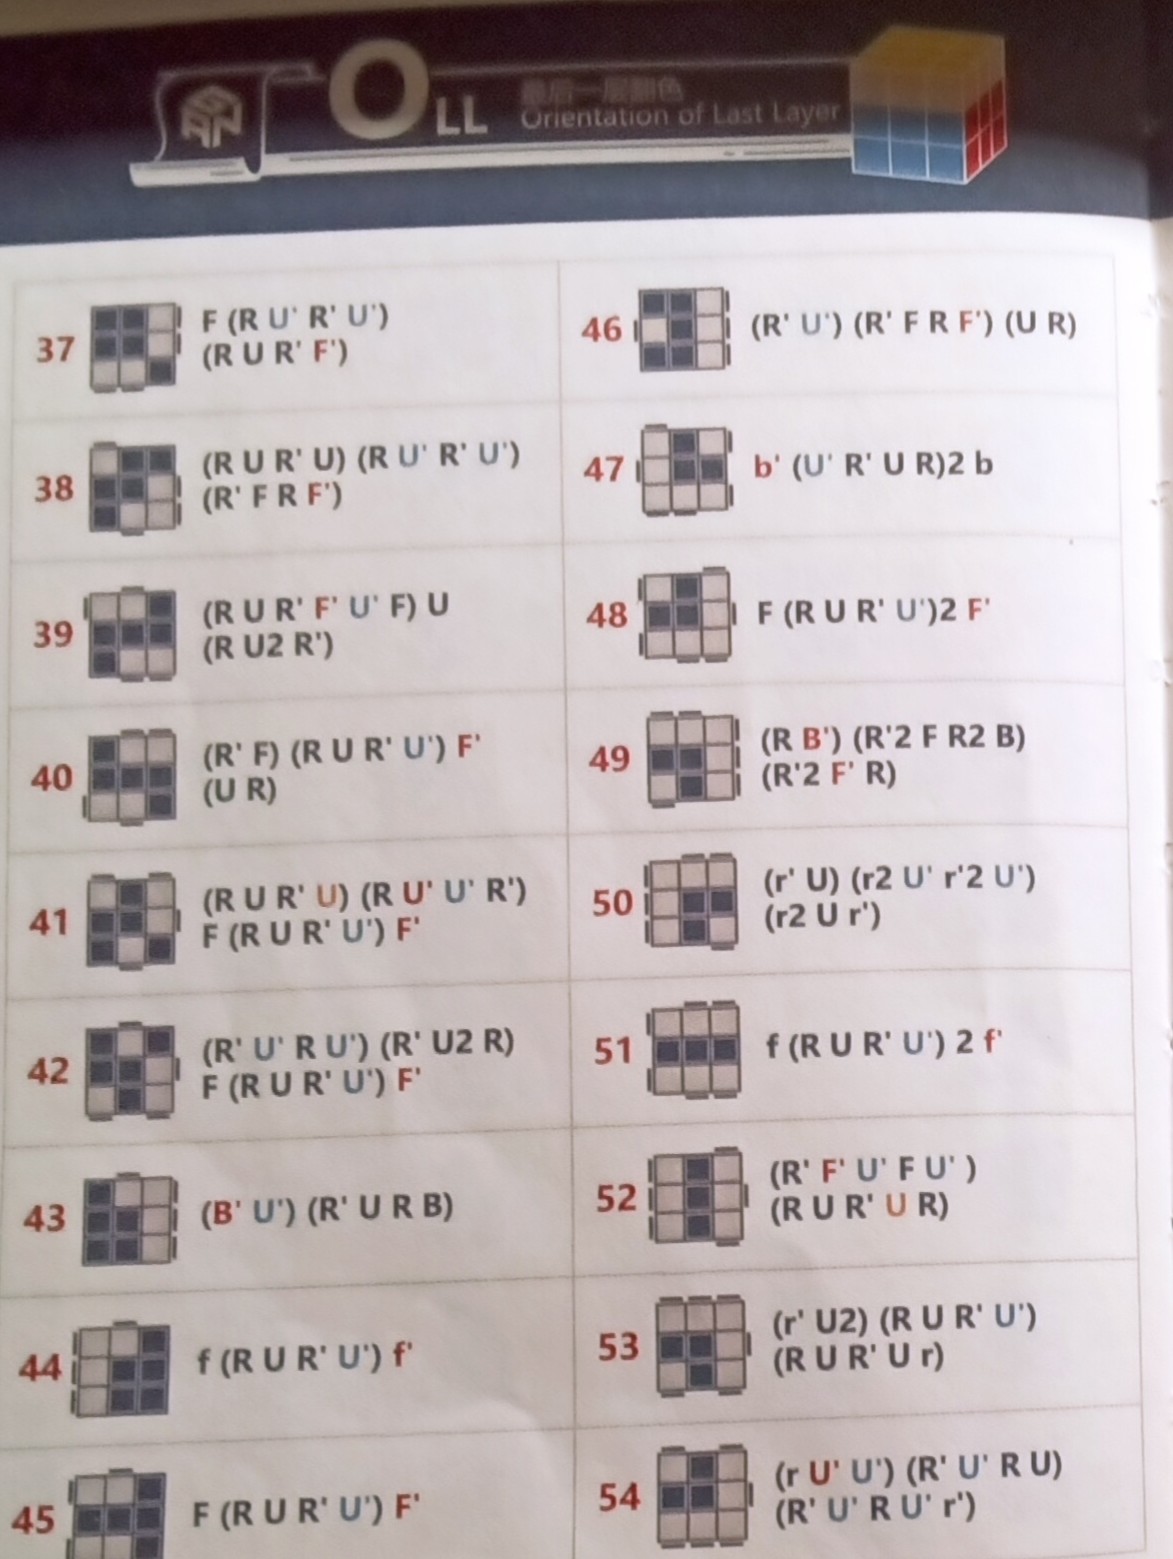 GAN
OLL
最后一层翻色
Orientation of Last Layer
37
F (R U' R' U')
(R U R' F')
38
(R U R' U) (R U' R' U')
(R' F R F')
39
(R U R' F' U' F) U
(R U2 R')
40
(R' F) (R U R' U') F'
(U R)
41
(R U R' U) (R U' U' R')
F (R U R' U') F'
42
(R' U' R U') (R' U2 R)
F (R U R' U') F'
43
(B' U') (R' U R B)
44
f (R U R' U') f'
45
F (R U R' U') F'
46
(R' U') (R' F R F') (U R)
47
b' (U' R' U R)2 b
48
F (R U R' U')2 F'
49
(R B') (R'2 F R2 B)
(R'2 F' R)
50
(r' U) (r2 U' r'2 U')
(r2 U r')
51
f (R U R' U') 2 f'
52
(R' F' U' F U' )
(R U R' U R)
53
(r' U2) (R U R' U')
(R U R' U r)
54
(r U' U') (R' U' R U)
(R' U' R U' r')